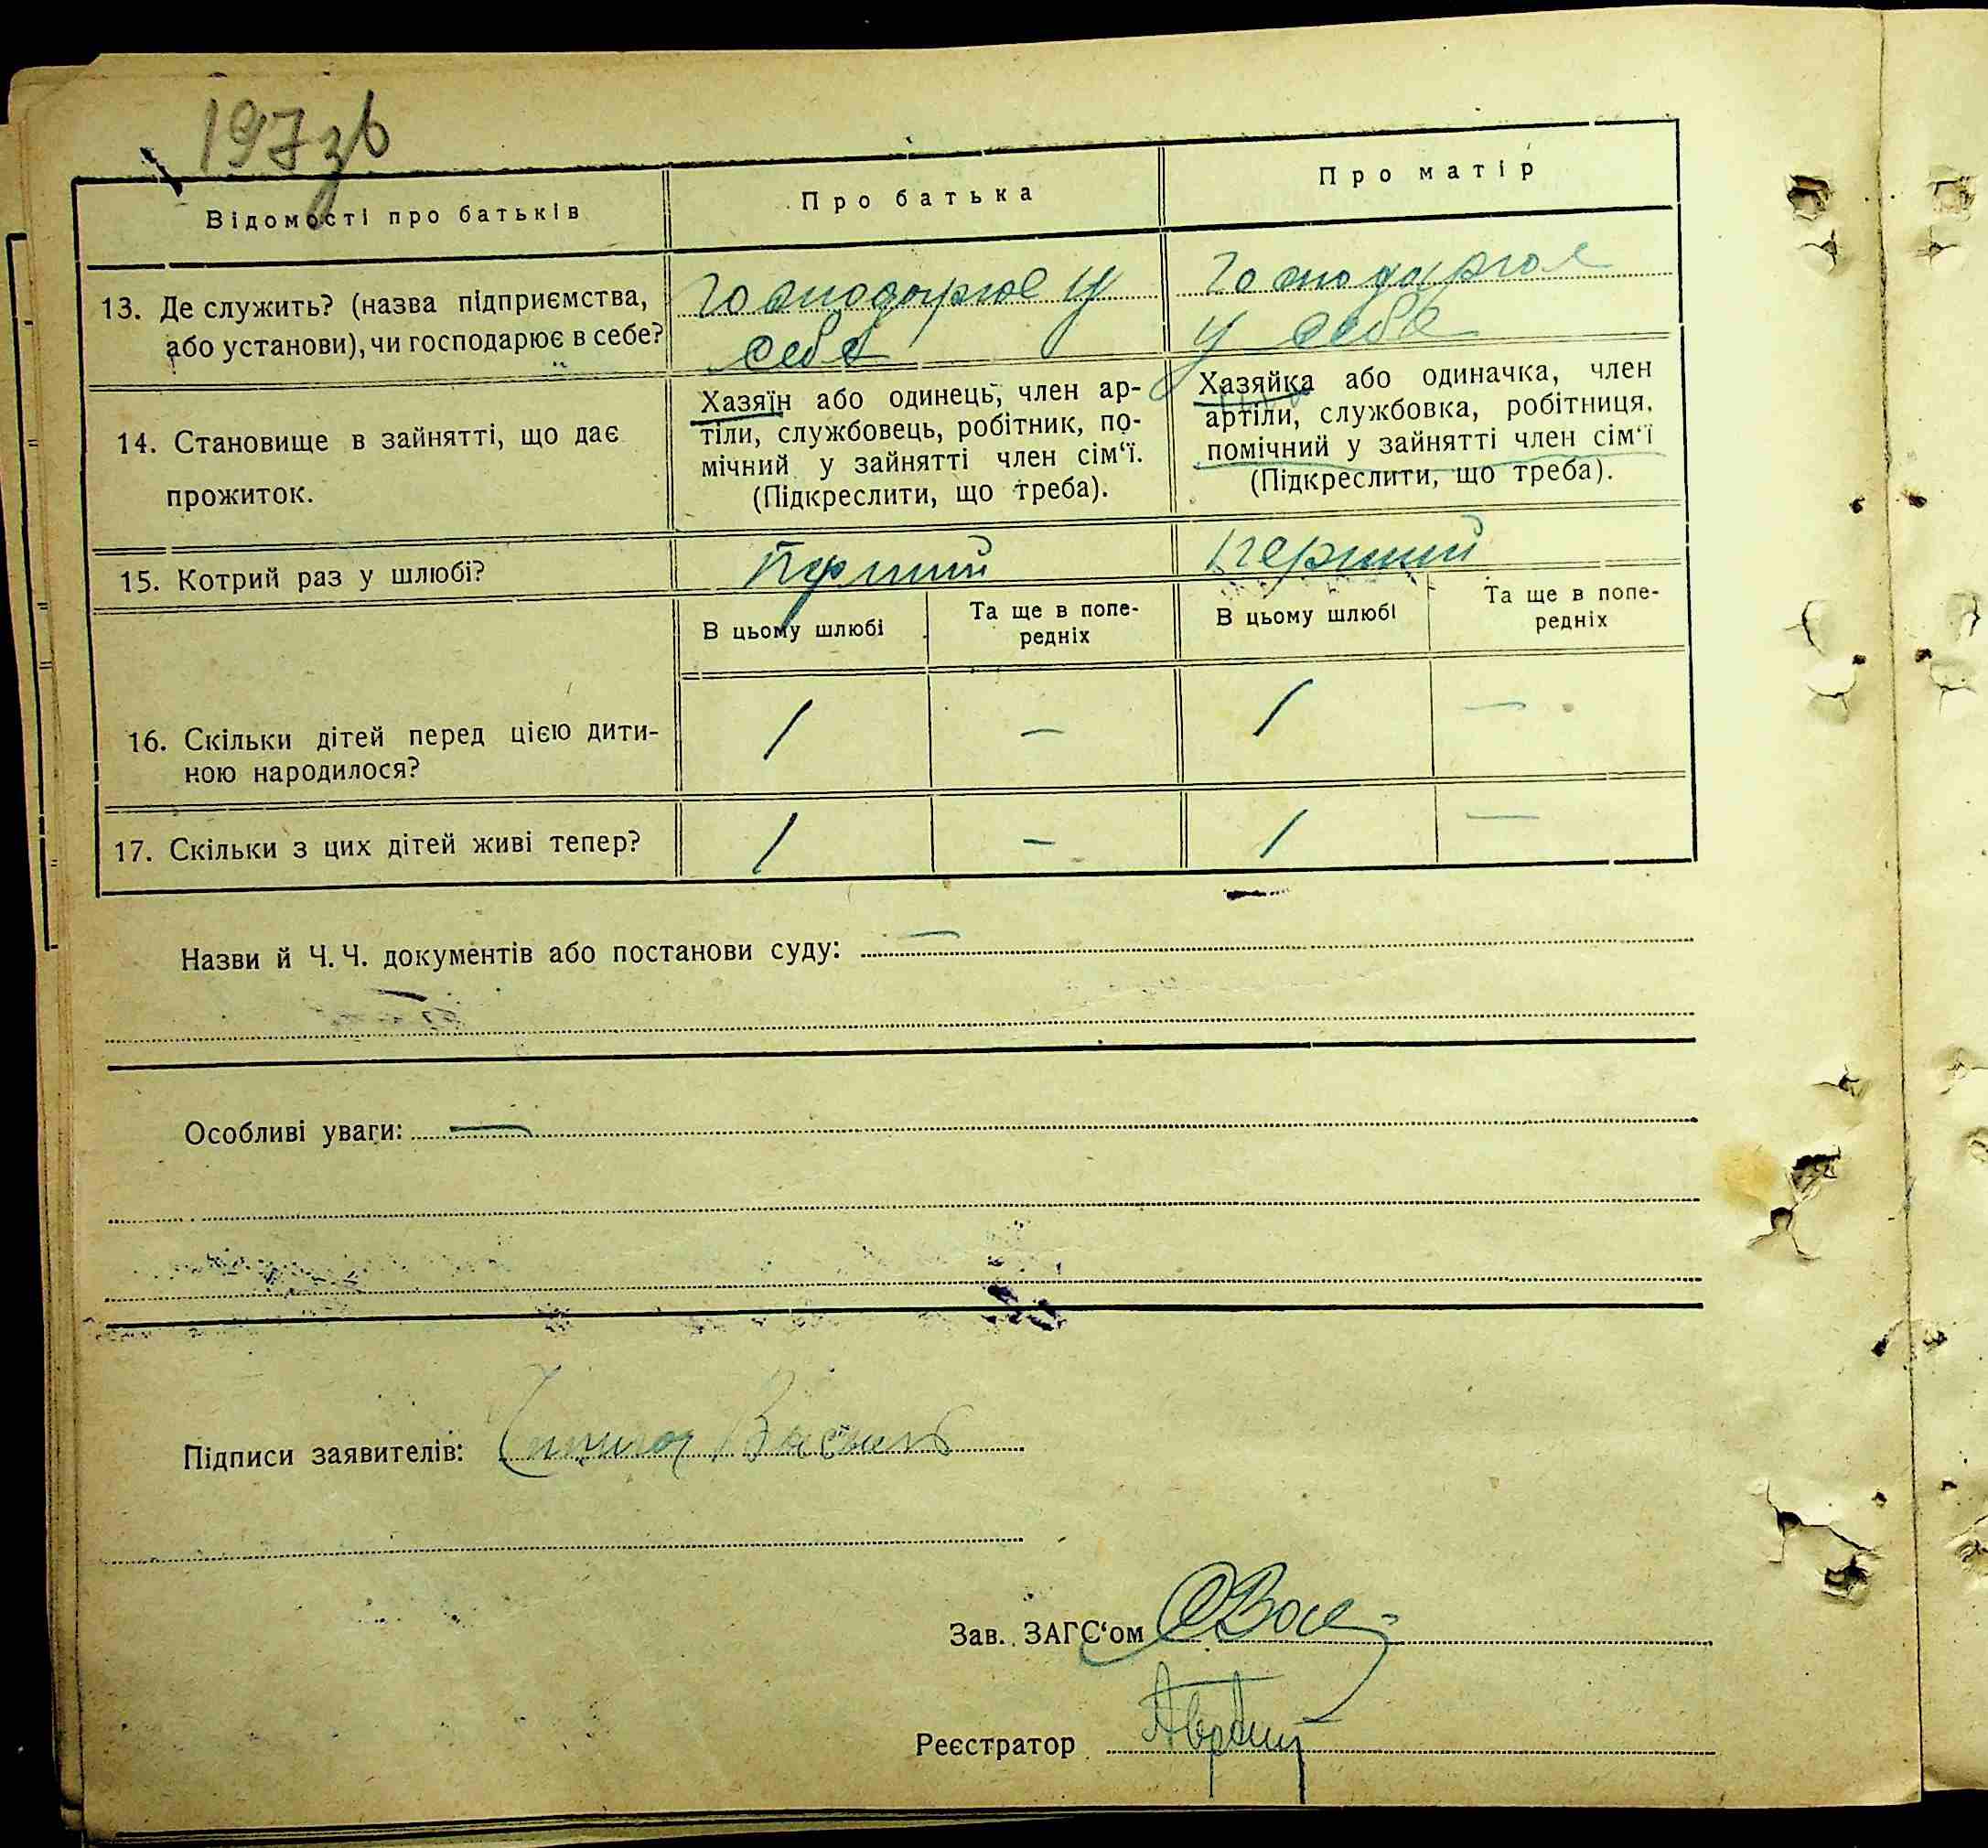 197зв
Відомості про батьків
Про батька
Про матір
13. Де служить? (назва підприємства,
або установи), чи господарює в себе?
господарює у
себе
господарює
у себе
14. Становище в зайнятті, що дає
прожиток.
Хазяїн або одинець, член ар-
тіли, службовець, робітник, по-
мічний у зайнятті член сім‘ї.
(Підкреслити, що треба).
Хазяйка або одиначка, член
артіли, службовка, робітниця,
помічний у зайнятті член сім‘ї
(Підкреслити, що треба).
15. Котрий раз у шлюбі?
Перший
перший
В цьому шлюбі
Та ще в попе-
редніх
В цьому шлюбі
Та ще в попе-
редніх
16. Скільки дітей перед цією дити-
ною народилося?
1
–
1
–
17. Скільки з цих дітей живі тепер?
1
–
1
–
Назви й Ч. Ч. документів або постанови суду: –
Особливі уваги: –
Підписи заявителів:
Зав. ЗАГС‘ом
Реєстратор